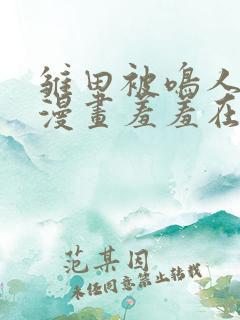 雏田被鸣人
漫畫羞羞在
范某因
未经同意禁止转载